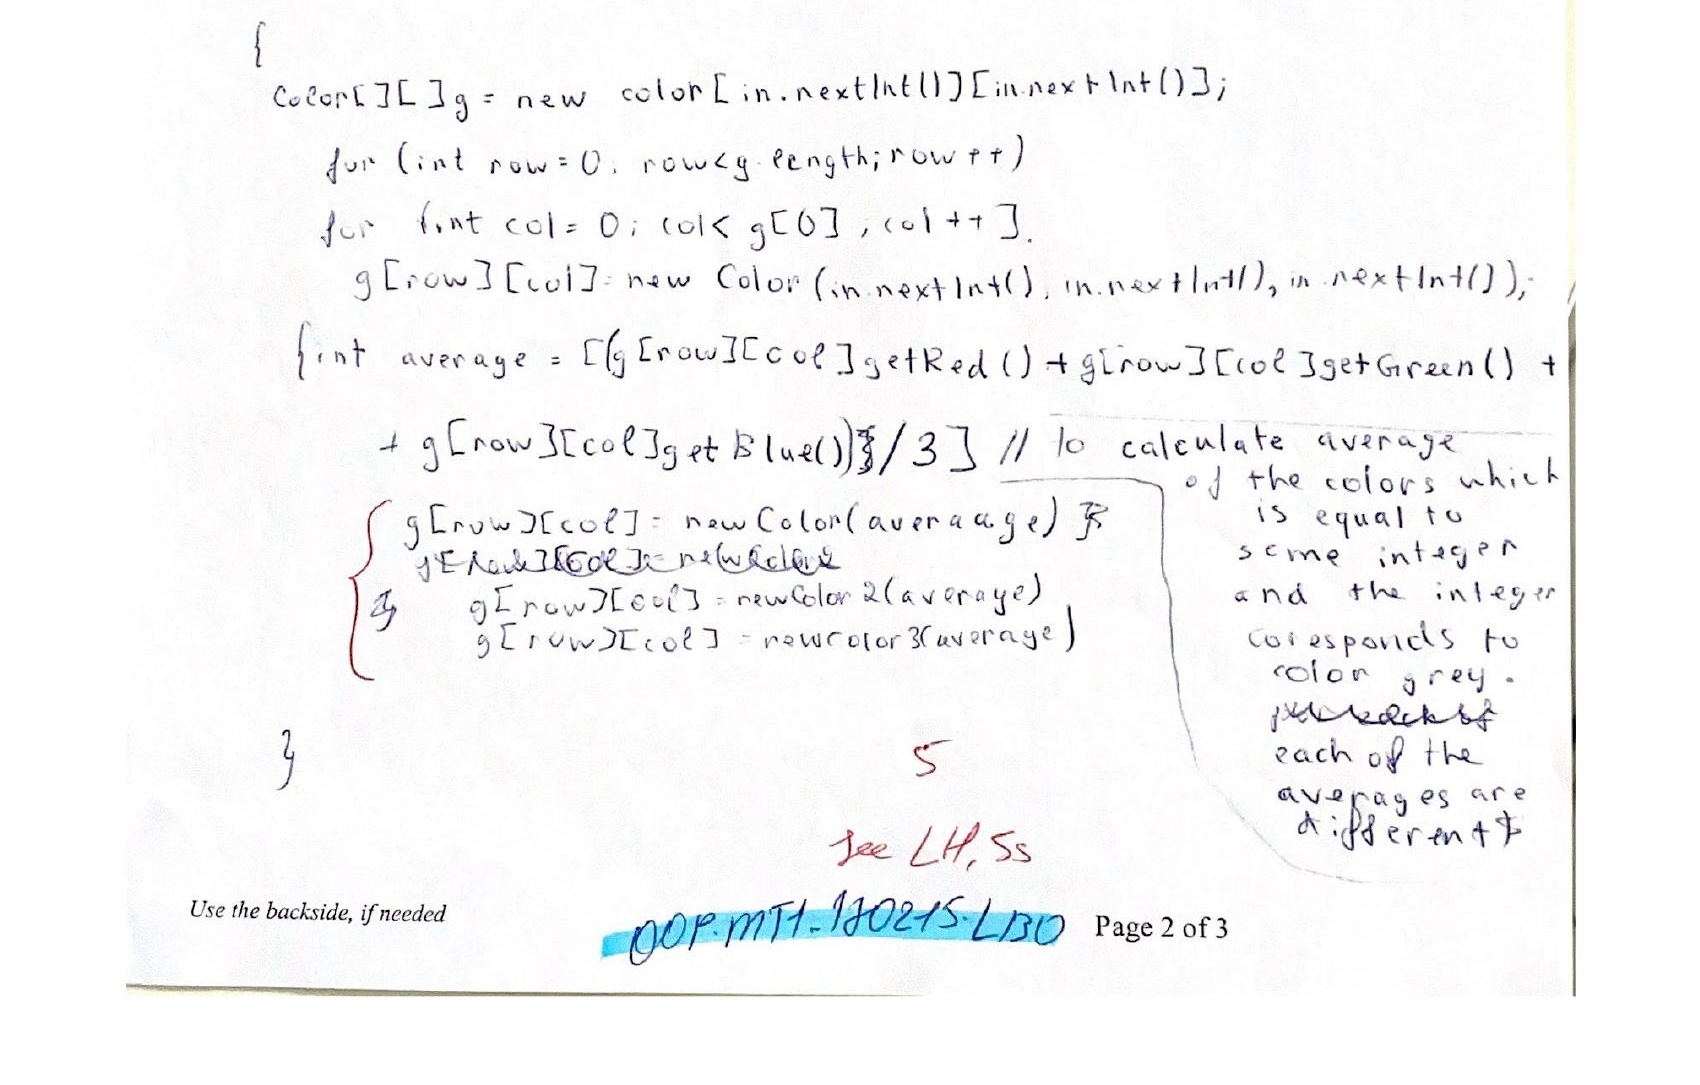 {
Color[ ][ ]g = new color[in.nextInt()][in.nextInt()];
for (int row=0; row<g.length; row++)
for (int col=0; col< g[0], col++].
g[row][col]=new Color(in.nextInt(), in.nextInt(), in.nextInt());
{int average = [(g[row][col]getRed() + g[row][col]getGreen() +
+ g[row][col]getBlue())/3] // To calculate average
of the colors which
is equal to
some integer
and the integer
coresponds to
color grey.
each of the
averages are
different
g[row][col] = new Color(averaage)
g[row][col] = newColor2(average)
g[row][col] = newcolor3(average)
}
5
see LH, Ss
Use the backside, if needed
OOP.MT1.170215.LBO
Page 2 of 3